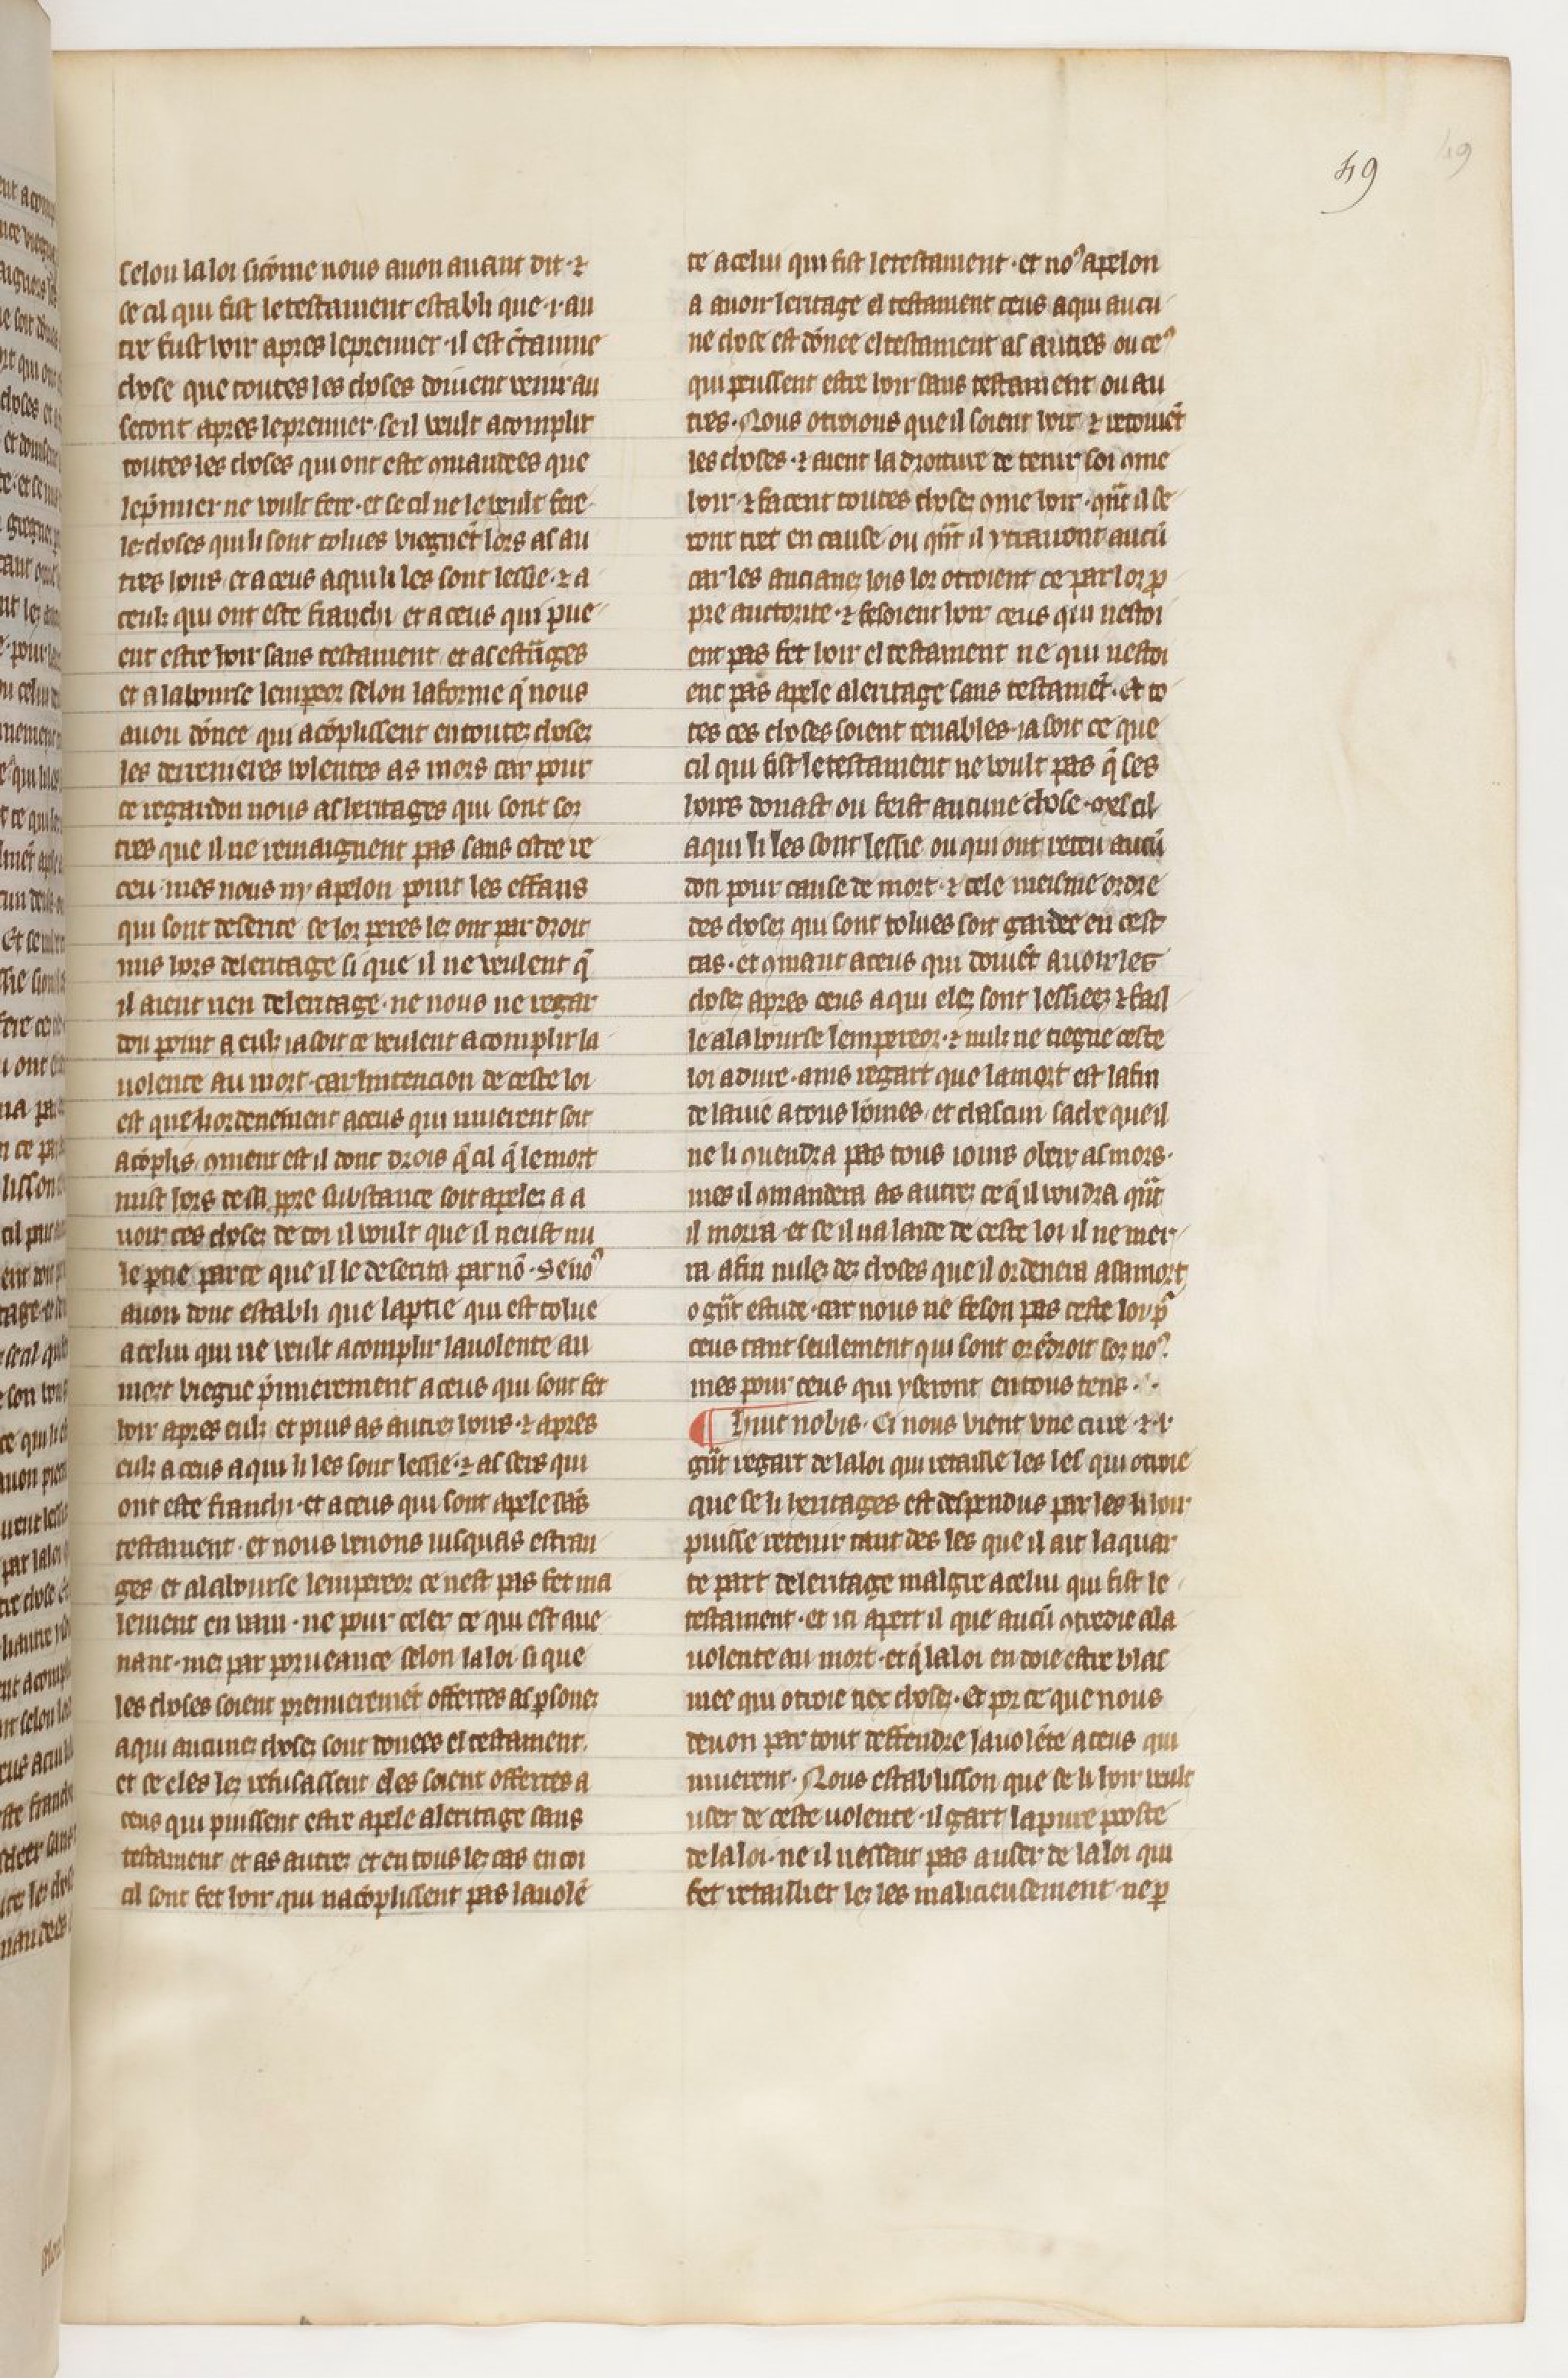 49
selon la loi sicōme nous auon auant dit · ⁊
se cil qui fist le testament establi que · i · au
tre fust hoir apres le premier · il est c̄tainne
chose que toutes les choses doiuent venir au
secont apres le premier · se il veult acomplir
toutes les choses qui ont este ꝯmandees que
le p̄mier ne voult fere · et se cil ne le veult fere
le choses qui li sont tolues viegnēt lors as au
tres hoirs et a ceus a qui li les sont lessie · ⁊ a
ceulz qui ont este franchi et a ceus qui pue
ent estre hoir sans testament et as estrāges
et a la bourse lempeor selon la forme q̄ nous
auon dōnee qui acōplissent en toutez chosez
les derrenieres volentes as mors car pour
ce regardon nous as heritages qui sont sor
tres que il ne remaignent pas sans estre re
ceu · mes nous ny apelon point les effans
qui sont deserite se lor peres lez ont par droit
mis hors deleritage si que il ne veulent q̄
il aient rien deleritage · ne nous ne regar
don point a eulz ia soit ce veulent acomplir la
uolente au mort · car lintencion de ceste loi
est que li ordenement a ceus qui muerent soit
acōplis · ꝯment est il donc drois q̄ cil q̄ le mort
mist hors de sa ꝓpre substance soit apelez a a
uoir ces chosez de coi il voult que il neust nu
le ꝑtie par ce que il le deserita par nō · Se noꝰ
auon donc establi que la ꝑtie qui est tolue
a celui qui ne veult acomplir la uolente au
mort viegne p̄mierement a ceus qui sont fet
hoir apres eulz et puis as autrez hoirs · ⁊ apres
eulz a ceus a qui li les sont lessie · ⁊ as sers qui
ont este franchi · et a ceus qui sont apele sās
testament · et nous venons iusquas estran
ges et a la bourse lempereor ce nest pas fet ma
lement en vain · ne pour celer ce qui est aue
nant · mez par porueance selon la loi si que
les choses soient premieremēt offertes as ꝑsonez
a qui aucunez chosez sont donees el testament ·
et se eles lez refusassent eles soient offertes a
ceus qui puissent estre apele aleritage sans
testament et as autrez et en tous lez cas en coi
cil sont fet hoir qui nacōplissent pas la uolē
te a celui qui fist le testament · et noꝰ apelon
a auoir leritage el testament ceus a qui aucu
ne chose est dōnee el testament as autres ou ceꝰ
qui peussent estre hoir sans testament ou au
tres · Nous otroions que il soient hoir ⁊ recoiuēt
les choses · ⁊ aient la droiture de tenir soi ꝯme
hoir · ⁊ facent toutes chosez ꝯme hoir · qn̄t il se
ront tret en cause ou qn̄t il y trairont aucū
car les ancianez lois lor otroient ce par lor ꝓ
pre auctorite · ⁊ fesoient hoir ceus qui nestoi
ent pas fet hoir el testament ne qui nestoi
ent pas apele aleritage sans testamēt · Et to
tes ces choses soient tenables · ia soit ce que
cil qui fist le testament ne voult pas q̄ ses
hoirs donast ou feist aucune chose · mes cil
a qui li les sont lessie ou qui ont receu aucū
don pour cause de mort · ⁊ cele meisme ordre
des chosez qui sont tolues soit gardee en cest
cas · et ꝯmant a ceus qui doiuēt auoir les
chosez apres ceus a qui elez sont lessieez ⁊ fail
le a la bourse lempereor · ⁊ nulz ne tiegne ceste
loi a dure · ains regart que la mort est la fin
de la uie a tous hōmes · et chascun sache que il
ne li ꝯuendra pas tous iours obeir as mors ·
mes il ꝯmandera as autrez ce q̄ il voudra qn̄t
il morra · et se il na laide de ceste loi il ne mer
ra a fin nulez dez choses que il ordenera a sa mort
o gn̄t estude · car nous ne feson pas ceste loy pr̄
ceus tant seulement qui sont orēdroit sor noꝰ ·
mes pour ceus qui y seront en tous tens ·
¶ Huic nobis · Ci nous vient vne cure · ⁊ · i ·
gn̄t regart de la loi qui retaille les les qui otroie
que se li heritages est despendus par les li hoir
puisse retenir tant des les que il ait la quar
te part deleritage malgre a celui qui fist le
testament · et ici apert il que aucū ꝯtredie a la
uolente au mort · et q̄ la loi en doie estre blas
mee qui otroie tiex chosez · Et por ce que nous
deuon par tout deffendre la uolēte a ceus qui
muerent · Nous establisson que se li hoir veult
user de ceste uolente · il gart la pure poste
de la loi · ne il nessait pas a user de la loi qui
fet retaillier lez les malicieusement · ne ꝑ